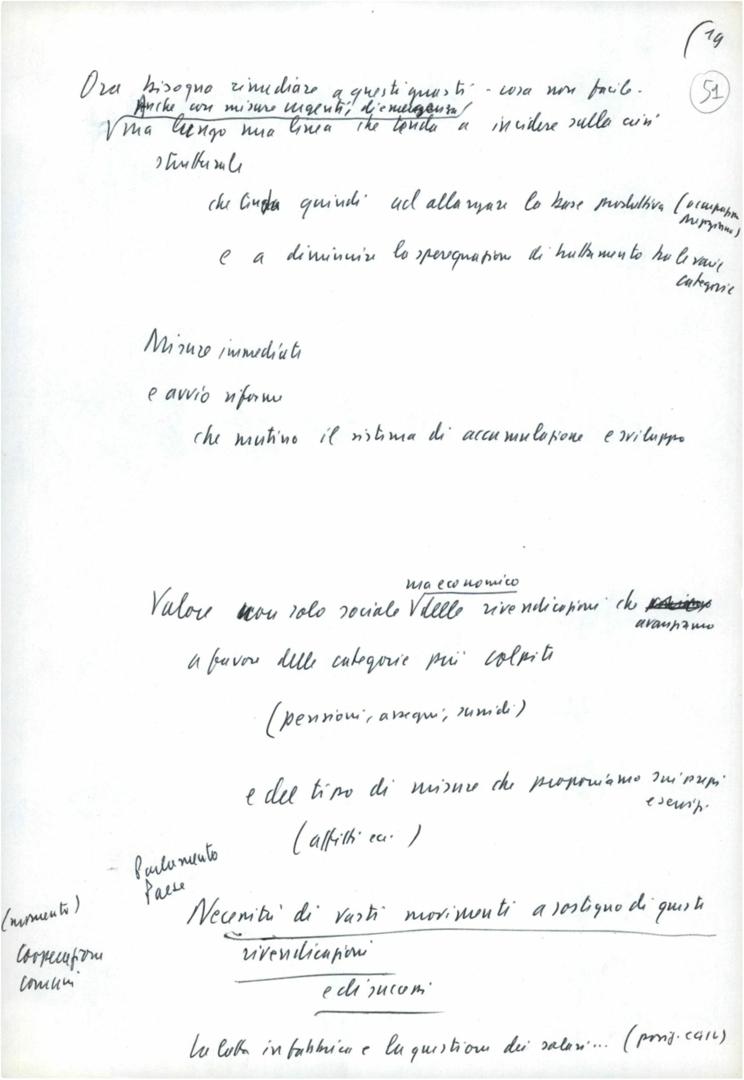 19
51
Ora bisogna rimediare a questi guasti - cosa non facile.
Anche con misure urgenti, di emergenza
ma lungo una linea che tenda a incidere sulla crisi
strutturale
che tenda quindi ad allargare la base produttiva (occupazione
e a diminuire la sperequazione di trattamento tra le varie
categorie
Misure immediate
e avvio riforme
che mutino il sistema di accumulazione e sviluppo
ma economico
Valore non solo sociale delle rivendicazioni che
avanziamo
a favore delle categorie più colpite
(pensioni, assegni, sussidi)
e del tipo di misure che proponiamo sui prezzi
e servizi.
(affitti ecc.)
Parlamento
Paese
(momento)
Cooperazione
comuni
Necessità di vasti movimenti a sostegno di queste
rivendicazioni
e di successi
La lotta in fabbrica e la questione dei salari... (posiz. CGIL)